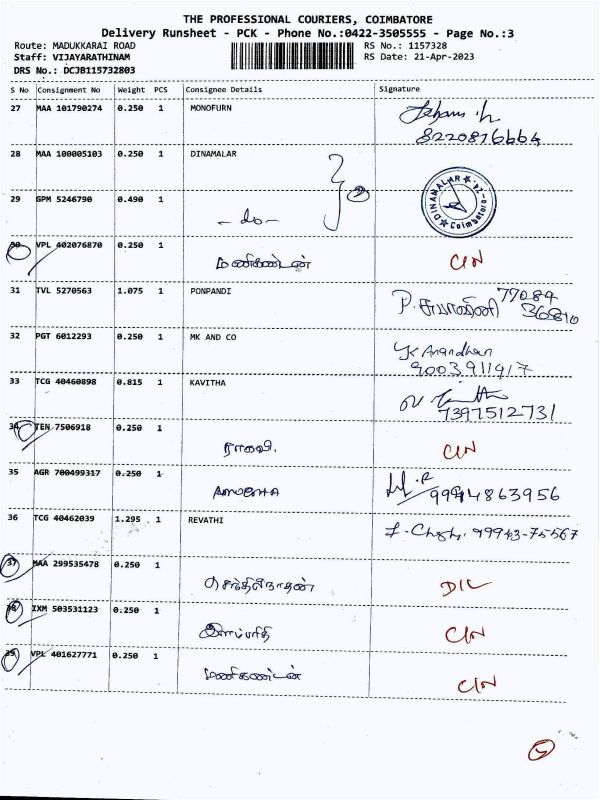 THE PROFESSIONAL COURIERS, COIMBATORE
Delivery Runsheet - PCK - Phone No.:0422-3505555 - Page No.:3
Route: MADUKKARAI ROAD RS No.: 1157328
Staff: VIJAYARATHINAM RS Date: 21-Apr-2023
DRS No.: DCJB115732803
S No Consignment No Weight PCS Consignee Details Signature
27 MAA 101790274 0.250 1 MONOFURN
8220876664
28 MAA 100005103 0.250 1 DINAMALAR
DINAMALAR Coimbatore
29 GPM 5246790 0.490 1
- do -
2
30 VPL 402076870 0.250 1
மணிகண்டன் C/N
31 TVL 5270563 1.075 1 PONPANDI
77084
36810
32 PGT 6012293 0.250 1 MK AND CO
Anandhan
9003911917
33 TCG 40460898 0.815 1 KAVITHA
7397512731
34 TEN 7506918 0.250 1
C/N
35 AGR 700499317 0.250 1
9994863956
36 TCG 40462039 1.295 1 REVATHI
99943-75567
37 MAA 299535478 0.250 1
செந்தில்நாதன் D/L
38 IXM 503531123 0.250 1
C/N
39 VPL 401627771 0.250 1
மணிகண்டன் C/N